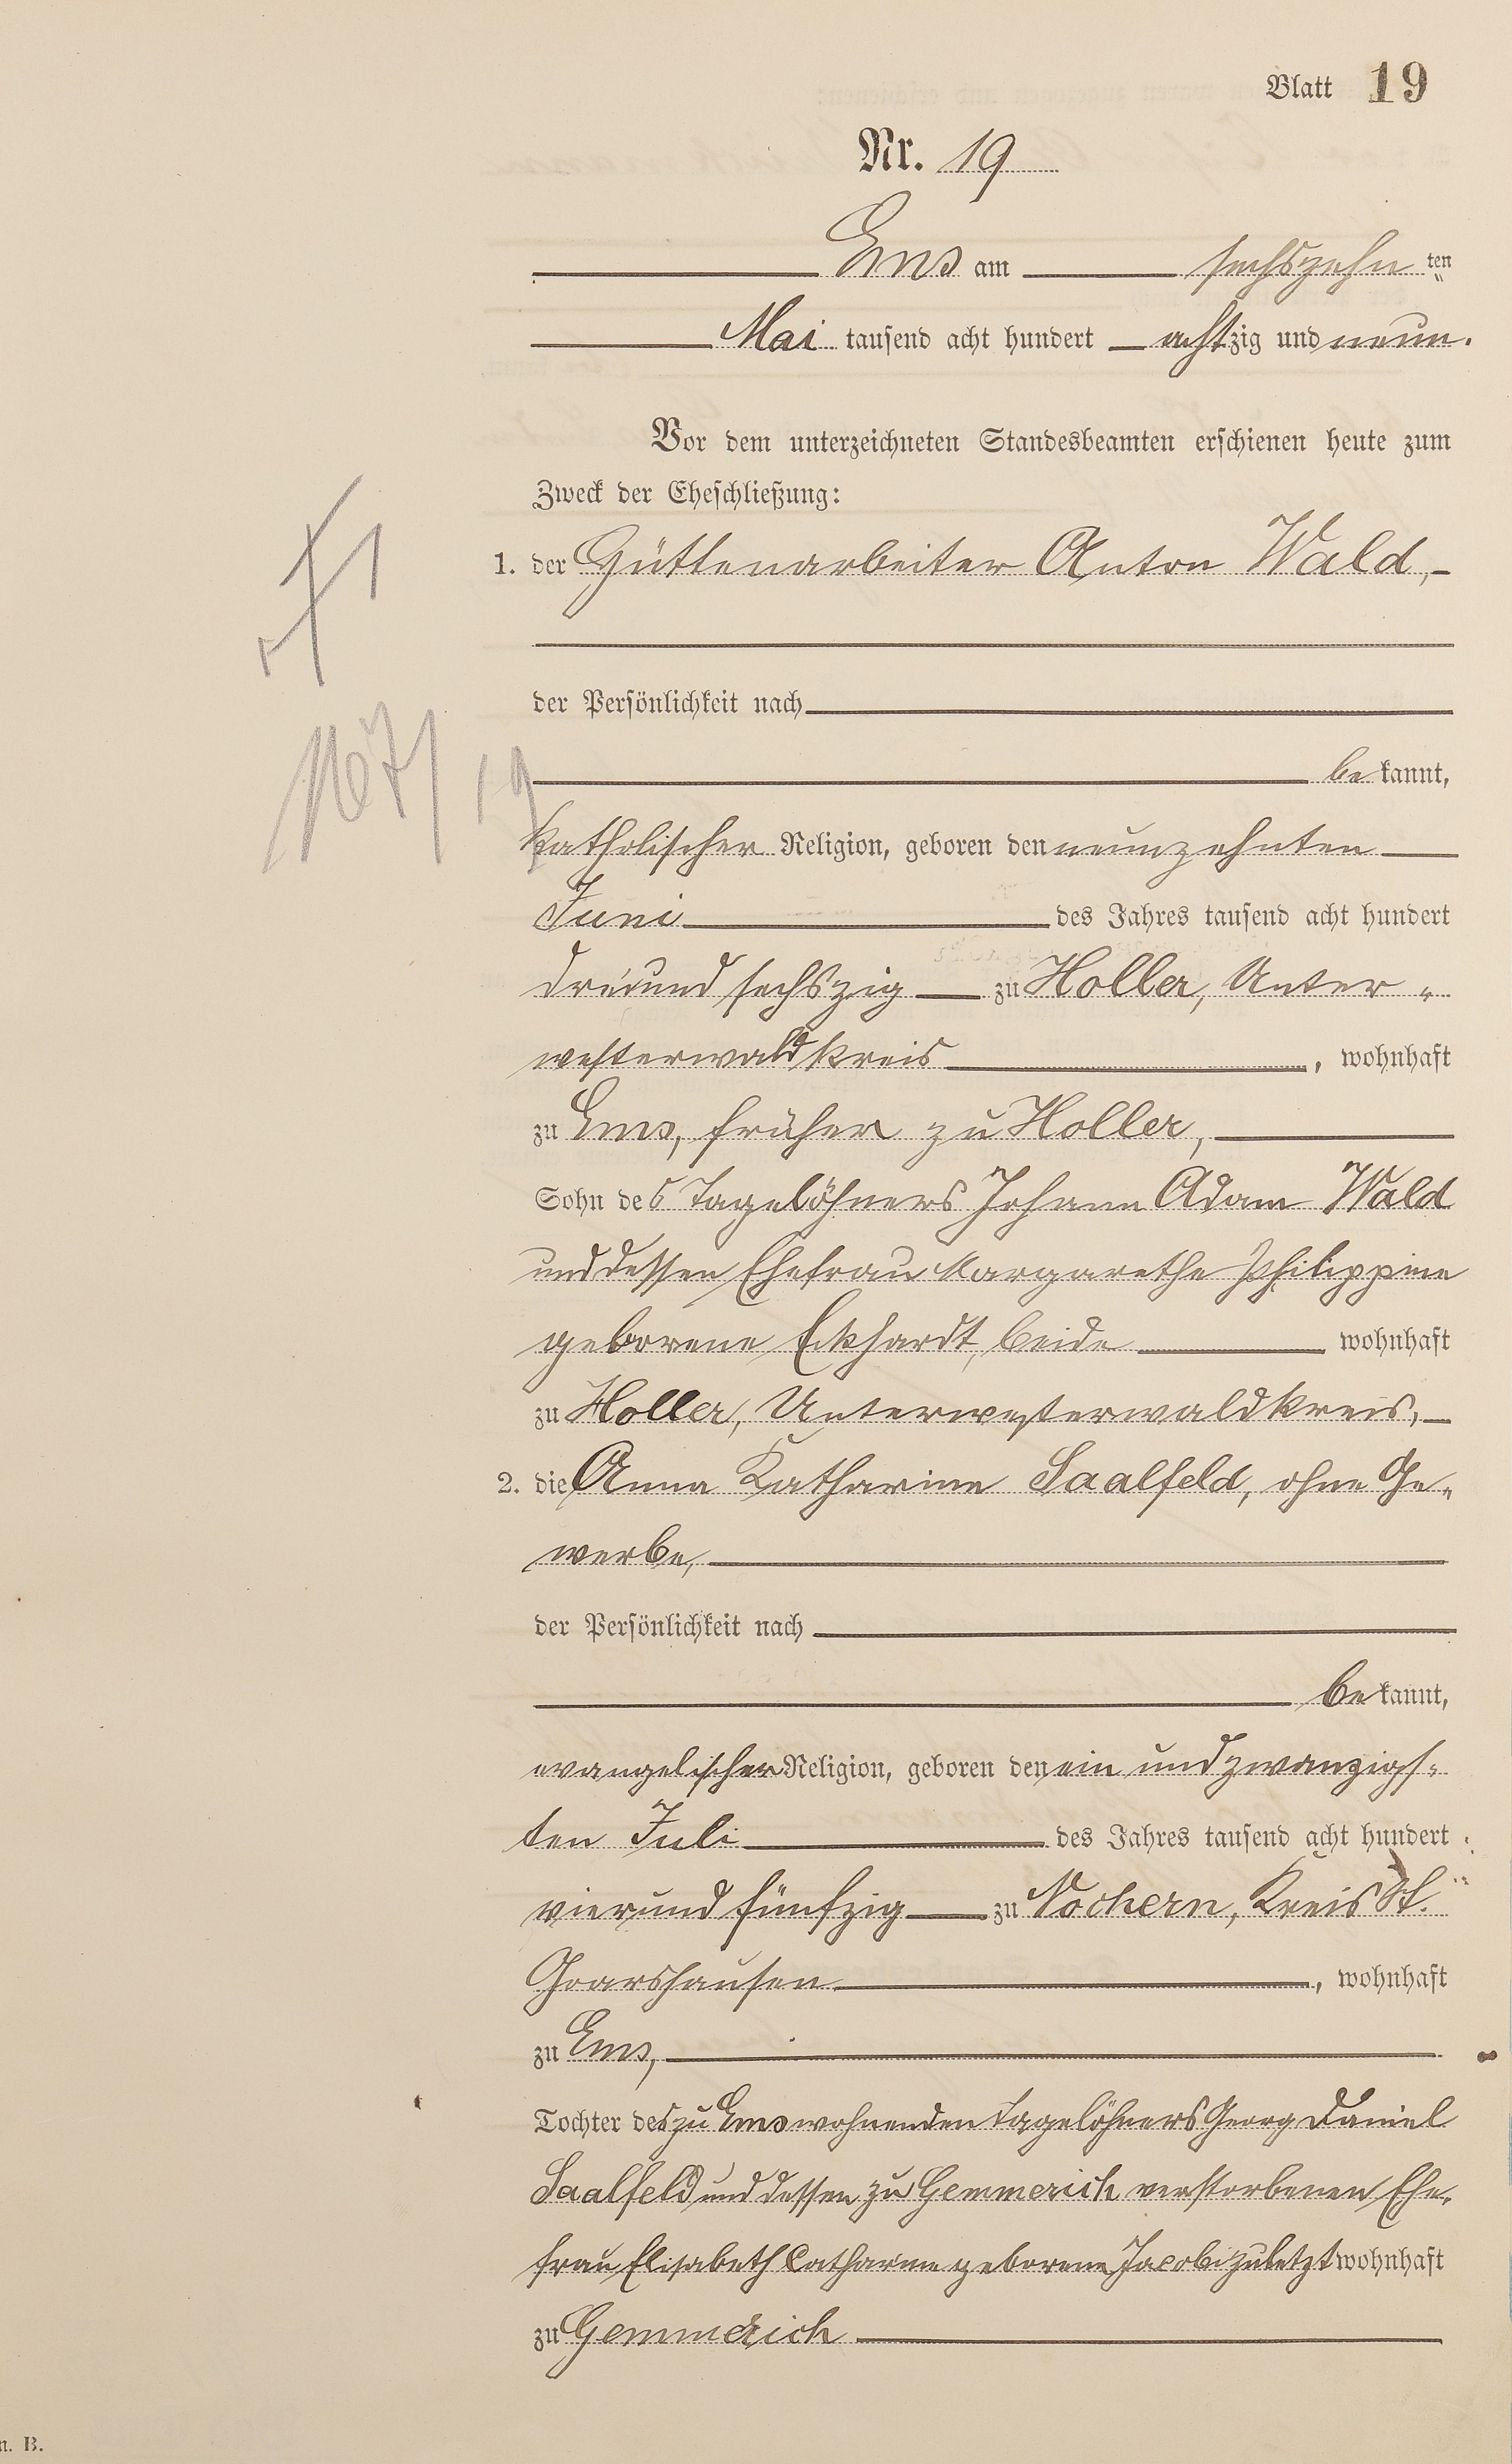 Blatt 19
Nr. 19
Ems am sechszehn ten
Mai tausend acht hundert achtzig und neun.
Vor dem unterzeichneten Standesbeamten erschienen heute zum
Zweck der Eheschließung:
1. der Hüttenarbeiter Anton Wald,
der Persönlichkeit nach
bekannt,
katholischer Religion, geboren den neunzehnten
Juni des Jahres tausend acht hundert
dreiund sechszig zu Holler, Unter-
westerwaldkreis, wohnhaft
zu Ems, früher zu Holler,
Sohn des Tagelöhners Johann Adam Wald
und dessen Ehefrau Margarethe Philippine
geborene Eckhardt, beide wohnhaft
zu Holler, Unterwesterwaldkreis,
2. die Anna Katharine Saalfeld, ohne Ge-
werbe,
der Persönlichkeit nach
bekannt,
evangelischer Religion, geboren den ein und zwanzigs-
ten Juli des Jahres tausend acht hundert
vierund fünfzig zu Nochern, Kreis St.
Goarshausen, wohnhaft
zu Ems,
Tochter des zu Ems wohnenden Tagelöhners Georg Daniel
Saalfeld und dessen zu Gemmerich verstorbenen Ehe-
frau Elisabeth Catharine geborene Jacobi zuletzt wohnhaft
zu Gemmerich
n. B.